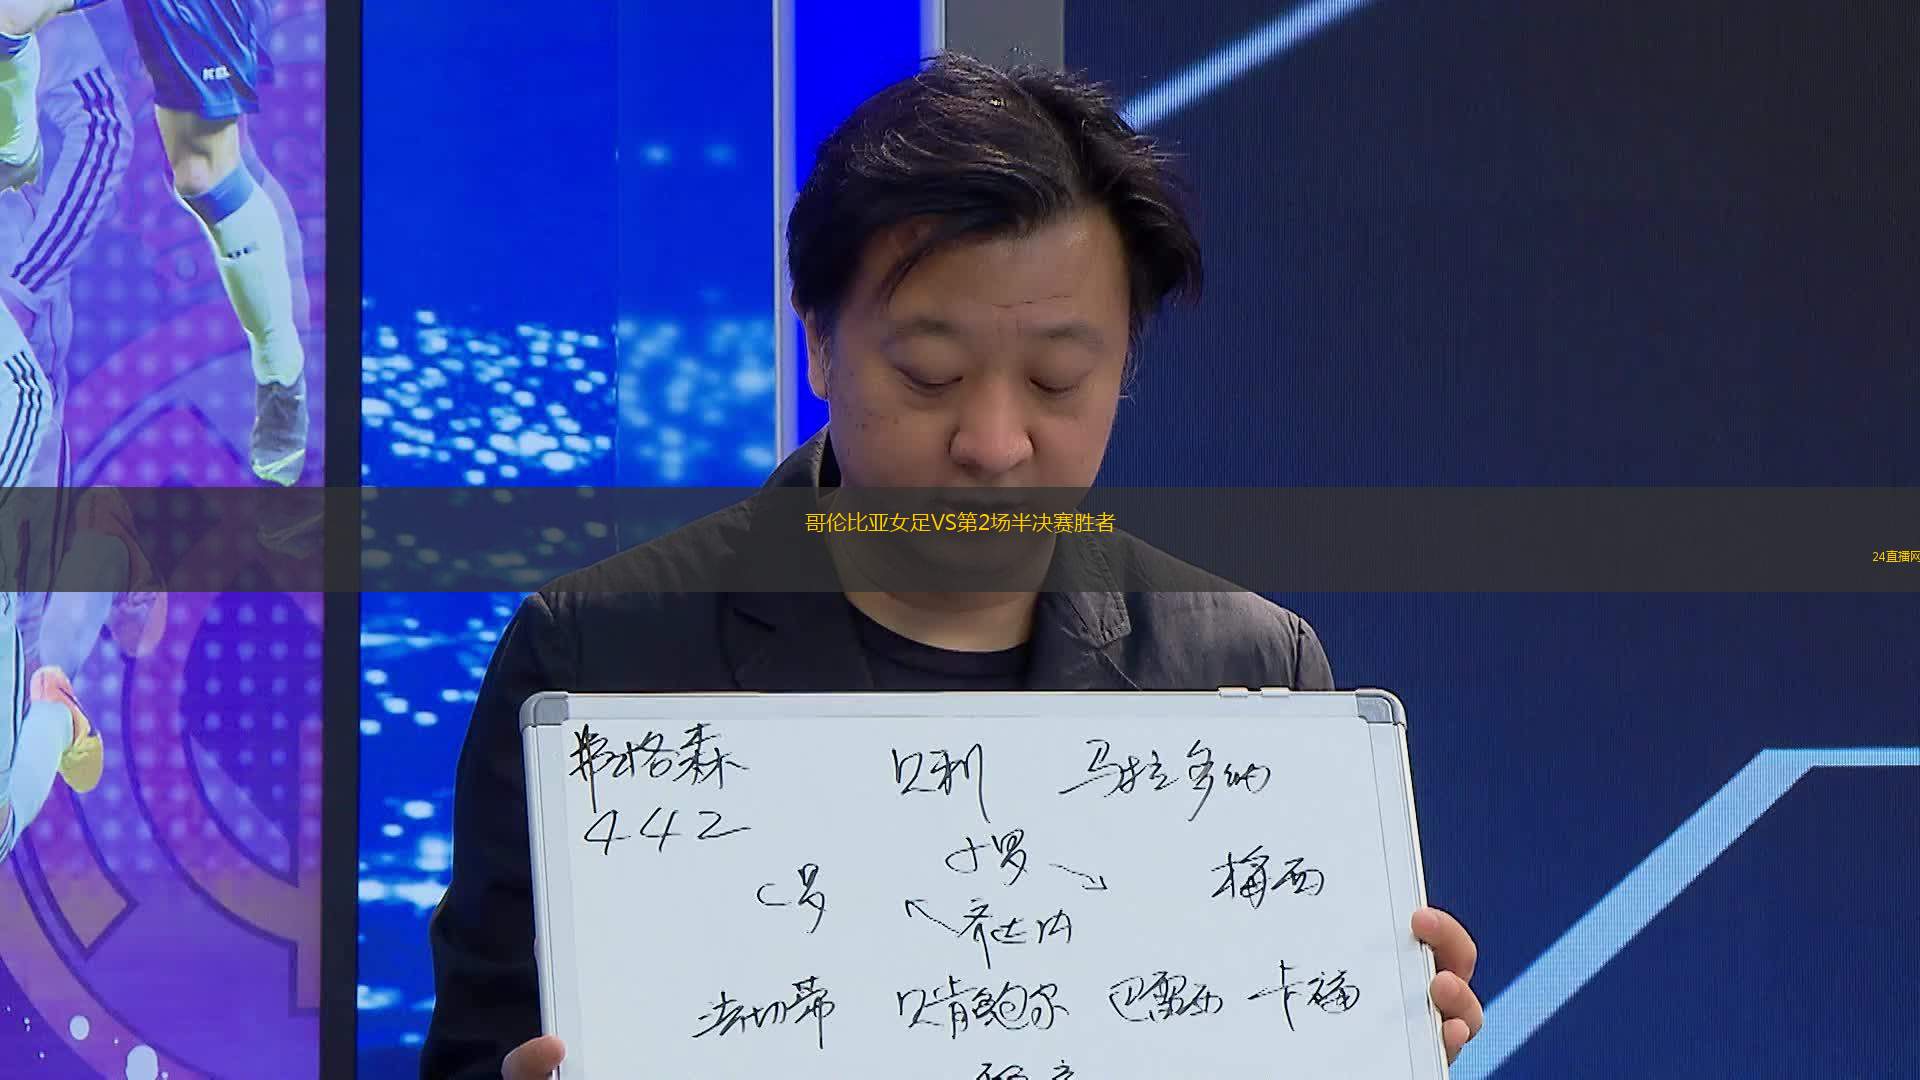 哥伦比亚女足VS第2场半决赛胜者
24直播网
弗格森 贝利 马拉多纳
442
小罗
C罗 梅西
齐达内
法切蒂 贝肯鲍尔 巴雷西 卡福